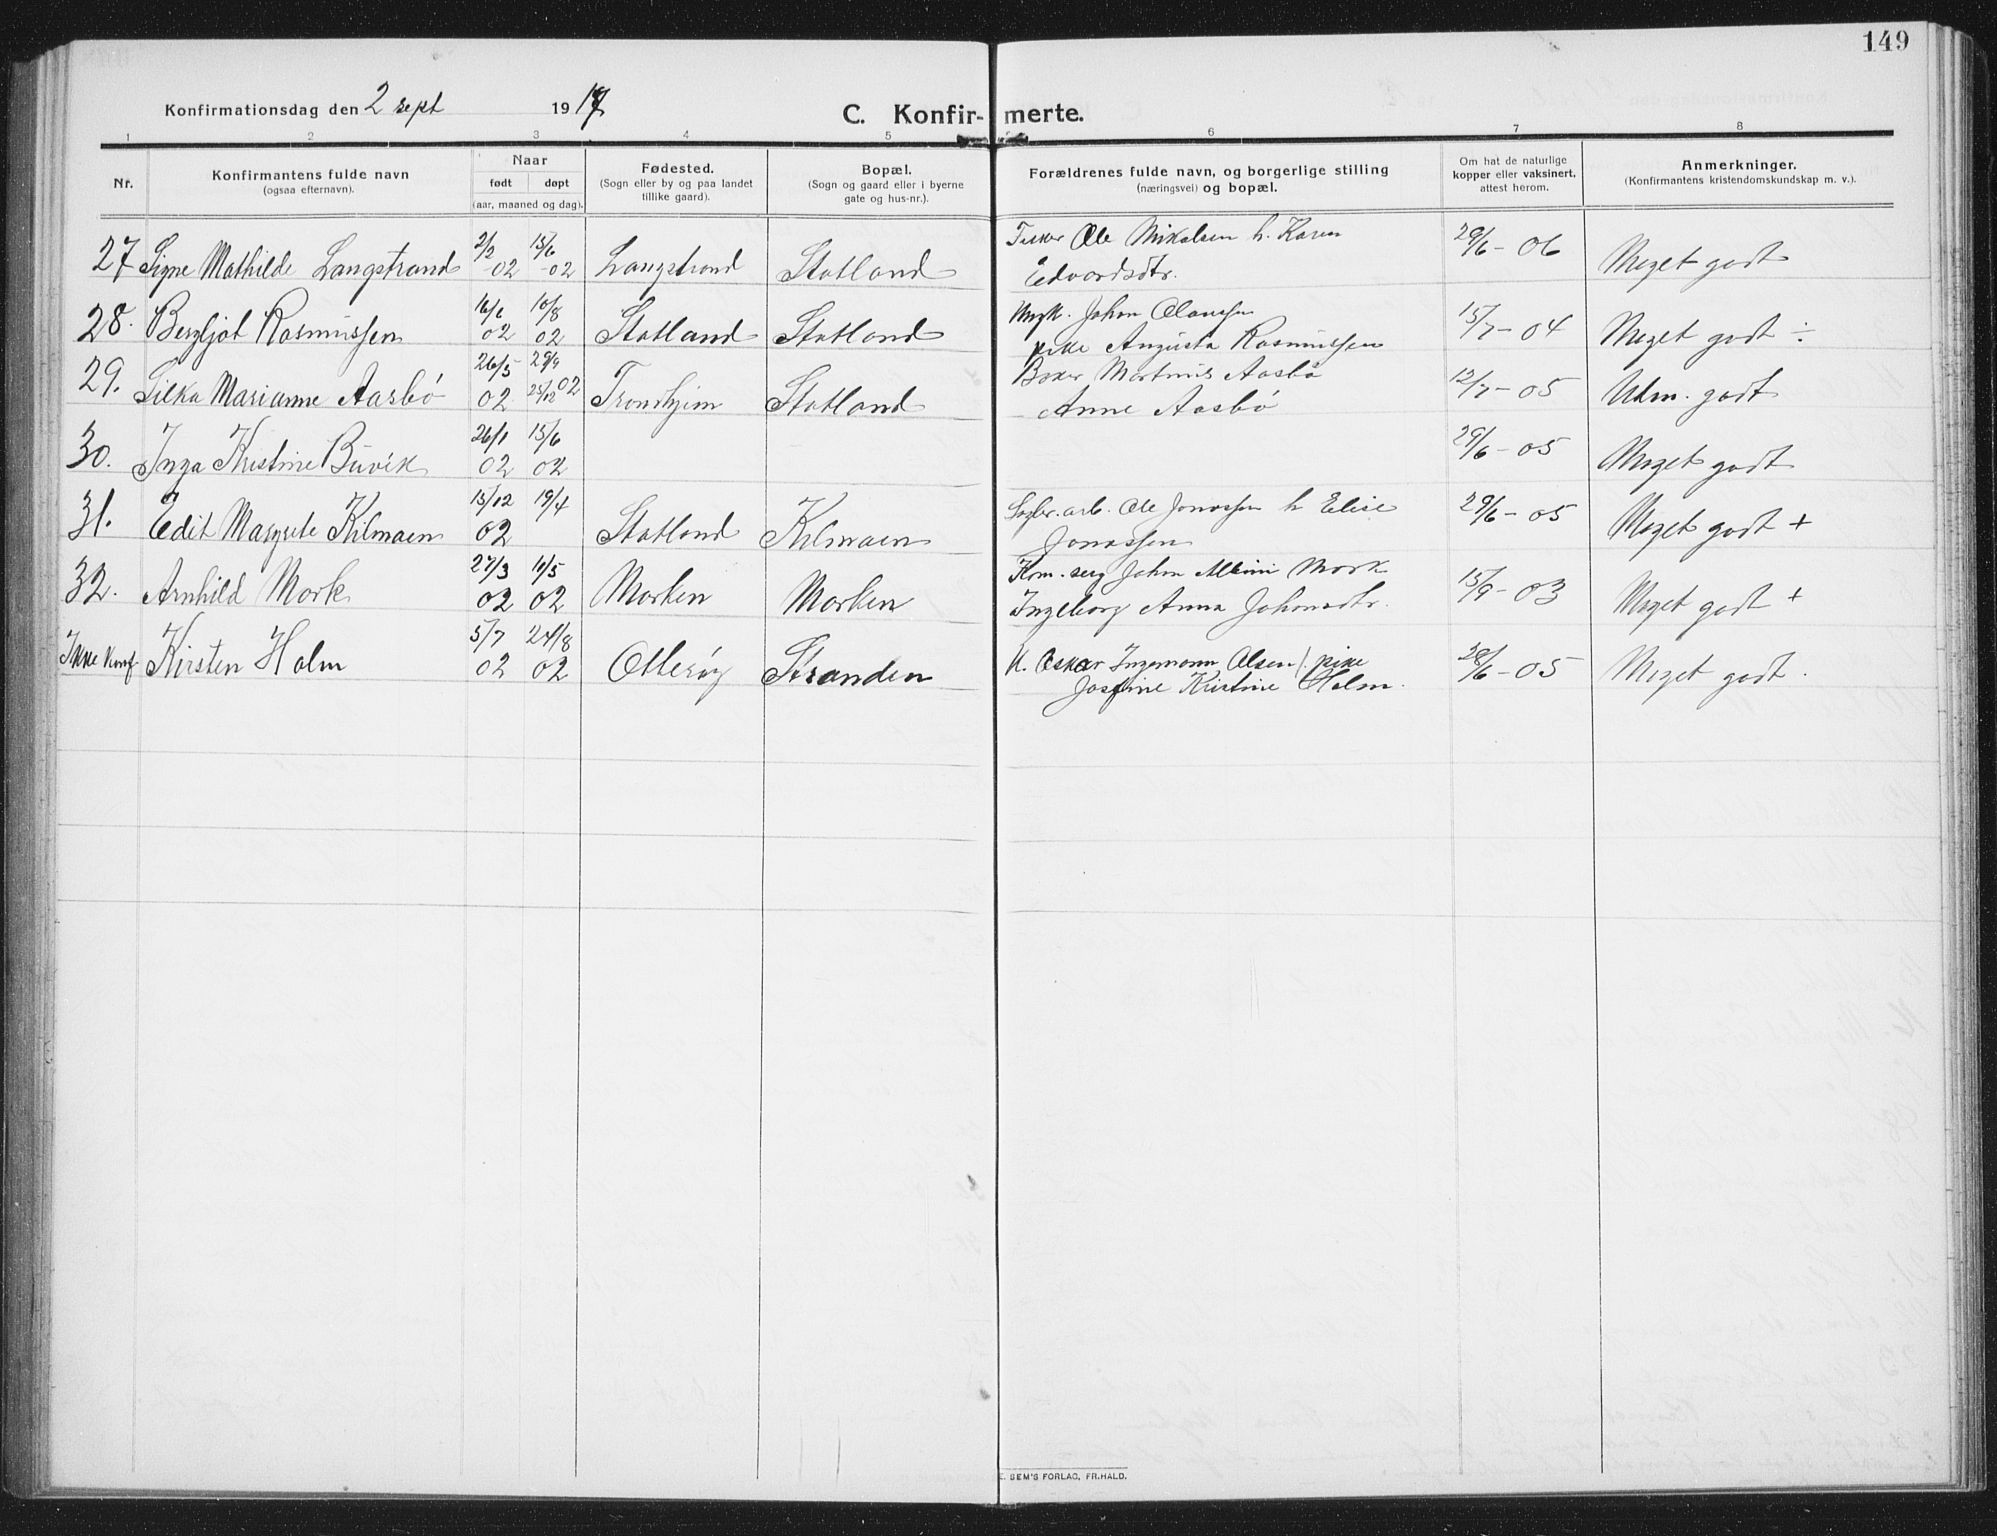 149
Konfirmationsdag den 2 sept 1917
C. Konfirmerte.
1 2 3 4 5 6 7 8
Nr.
Konfirmantens fulde navn
(ogsaa efternavn).
Naar
født døpt
(aar, maaned og dag).
Fødested.
(Sogn eller by og paa landet
tillike gaard).
Bopæl.
(Sogn og gaard eller i byerne
gate og hus-nr.).
Forældrenes fulde navn, og borgerlige stilling
(næringsvei) og bopæl.
Om hat de naturlige
kopper eller vaksinert,
attest herom.
Anmerkninger.
(Konfirmantens kristendomskundskap m. v.).
27 Signe Mathilde Langstrand 2/2 -02 15/6 -02 Langstrand Statland Fisker Ole Mikalsen h. Karen
Edvardsdtr. 29/6 - 06 Meget godt
28. Bergljot Rasmussen 16/6 02 10/8 02 Statland Statland Ungk. Johan Olaussen
pike Augusta Rasmussen 15/7 - 04 Meget godt ÷
29. Silka Marianne Aasbø 26/5 02 29/9 25/12 02 Trondhjem Statland Baker Martinus Aasbø
Anne Aasbø 12/7 - 05 Udm. godt
30. Inga Kristine Buvik 26/1 02 15/6 02 29/6 - 05 Meget godt
31. Edit Margrete Kilmaen 15/12 02 19/4 Statland Kilmaen Sagbr. arb. Ole Jonassen h Elise
Jonassen 29/6 - 05 Meget godt +
32. Arnhild Mork 27/3 02 11/5 02 Morken Morken Kom. serg Johan Albini Mork
Ingeborg Anna Johansdtr. 15/9 - 03 Meget godt +
Ikke konf Kirsten Holm 5/7 02 24/8 02 Otterøy Stranden U. Oskar Ingemann Olsen /. pike
Josefine Kristine Holm. 28/6 - 05 Meget godt.
E. SEM'S FORLAG, FR.HALD.